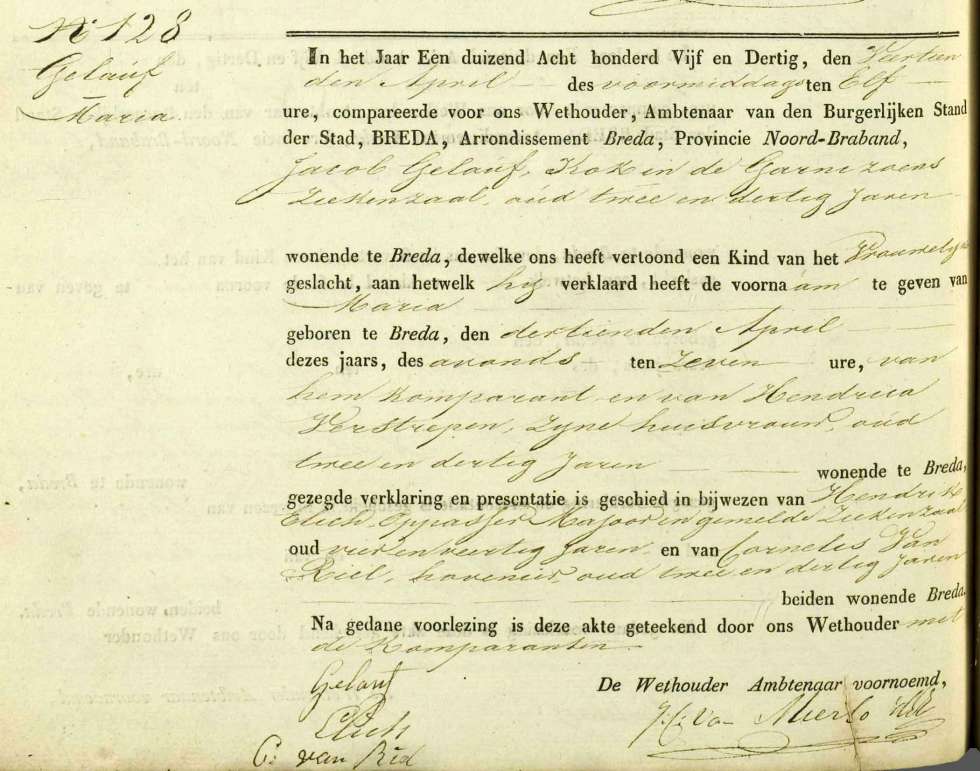 N° 128
Gelauf
Maria
In het Jaar Een duizend Acht honderd Vijf en Dertig, den Veertien
den April des voormiddags ten Elf
ure, compareerde voor ons Wethouder, Ambtenaar van den Burgerlijken Stand
der Stad, BREDA, Arrondissement Breda, Provincie Noord-Braband,
Jacob Gelauf, Kok in de Garnizoens
Ziekenzaal, oud twee en dertig Jaren
wonende te Breda, dewelke ons heeft vertoond een Kind van het Vrouwelijk
geslacht, aan hetwelk hij verklaard heeft de voornaam te geven van
Maria
geboren te Breda, den dertienden April
dezes jaars, des avonds ten Zeven ure, van
hem Komparant en van Hendrica
Verstrepen, Zyne huisvrouw, oud
twee en dertig Jaren wonende te Breda,
gezegde verklaring en presentatie is geschied in bijwezen van Hendrik
Elich, Oppasser Majoor in gemelde Ziekenzaal
oud vier en veertig Jaren en van Cornelis Van
Riel, hovenier, oud twee en dertig Jaren
beiden wonende Breda.
Na gedane voorlezing is deze akte geteekend door ons Wethouder met
de Komparanten
Gelauf
Elich
C: van Riel
De Wethouder Ambtenaar voornoemd,
van Mierlo